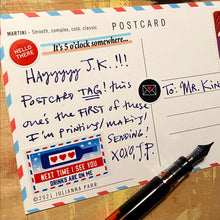 MARTINI - Smooth, complex, cold, classic
POSTCARD
HELLO THERE
It's 5 o'clock somewhere...
Hayyyyy J.K.!!!
POSTCARD TAG! This
one's the FIRST of these
I'm printing/making!
SENDING!
XOXO, J.P.
To: Mr. Kin
NEXT TIME I SEE YOU
DRINKS ARE ON ME
©2021 JULIANNA PARR